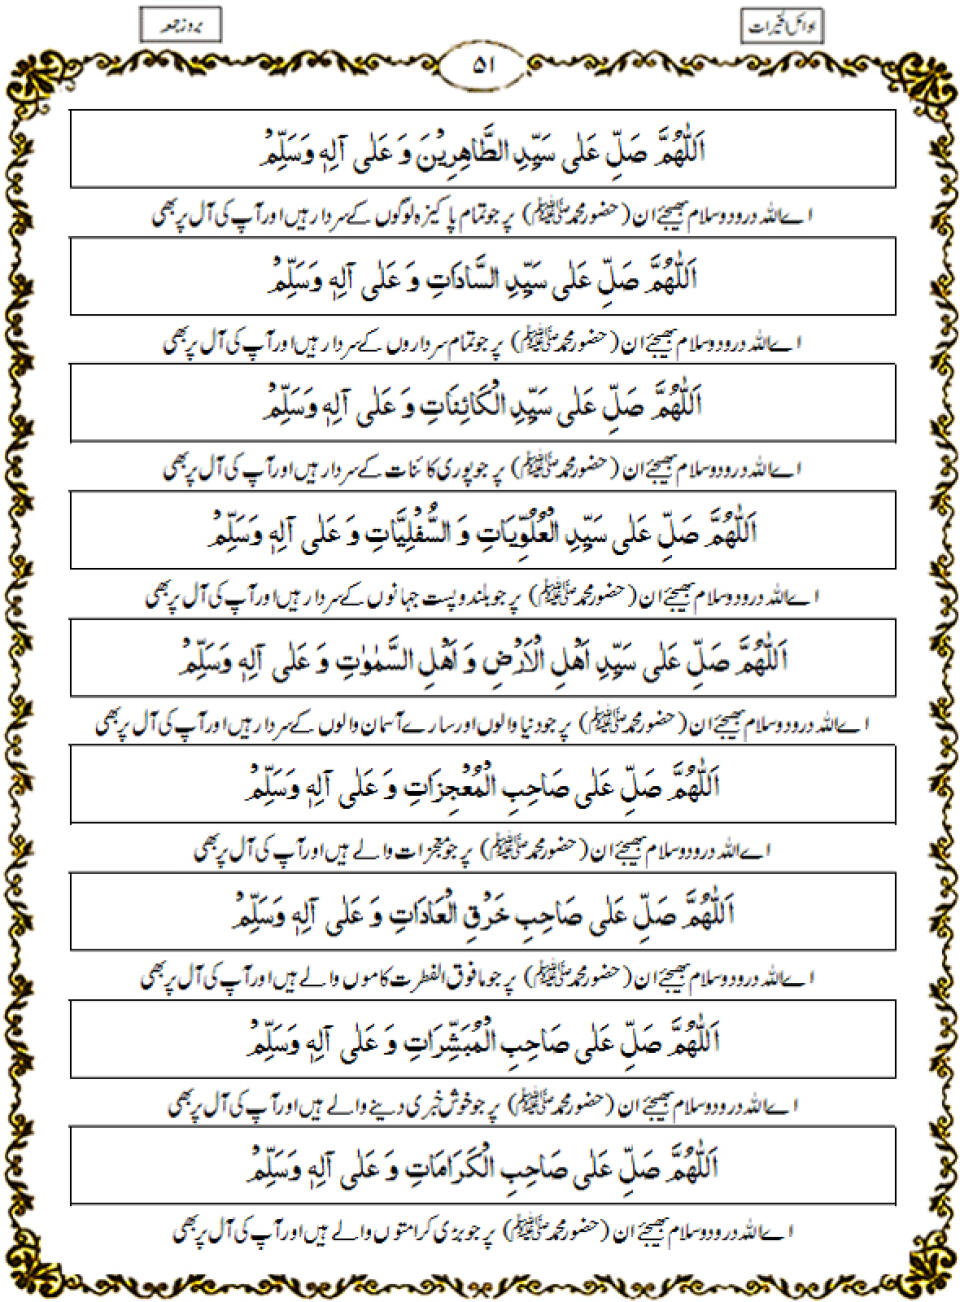 اوائل الخیرات
بروز جمعہ
۵۱
اَللّٰهُمَّ صَلِّ عَلٰی سَيِّدِ الطَّاهِرِيْنَ وَ عَلٰی آلِهٖ وَسَلِّمْ
اے اللہ درود و سلام بھیجئے ان (حضور محمد ﷺ) پر جو تمام پاکیزہ لوگوں کے سردار ہیں اور آپ کی آل پر بھی
اَللّٰهُمَّ صَلِّ عَلٰی سَيِّدِ السَّادَاتِ وَ عَلٰی آلِهٖ وَسَلِّمْ
اے اللہ درود و سلام بھیجئے ان (حضور محمد ﷺ) پر جو تمام سرداروں کے سردار ہیں اور آپ کی آل پر بھی
اَللّٰهُمَّ صَلِّ عَلٰی سَيِّدِ الْكَائِنَاتِ وَ عَلٰی آلِهٖ وَسَلِّمْ
اے اللہ درود و سلام بھیجئے ان (حضور محمد ﷺ) پر جو پوری کائنات کے سردار ہیں اور آپ کی آل پر بھی
اَللّٰهُمَّ صَلِّ عَلٰی سَيِّدِ الْعُلُوِّيَاتِ وَ السُّفْلِيَّاتِ وَ عَلٰی آلِهٖ وَسَلِّمْ
اے اللہ درود و سلام بھیجئے ان (حضور محمد ﷺ) پر جو بلند و پست جہانوں کے سردار ہیں اور آپ کی آل پر بھی
اَللّٰهُمَّ صَلِّ عَلٰی سَيِّدِ اَهْلِ الْاَرْضِ وَ اَهْلِ السَّمٰوٰتِ وَ عَلٰی آلِهٖ وَسَلِّمْ
اے اللہ درود و سلام بھیجئے ان (حضور محمد ﷺ) پر جو دنیا والوں اور سارے آسمان والوں کے سردار ہیں اور آپ کی آل پر بھی
اَللّٰهُمَّ صَلِّ عَلٰی صَاحِبِ الْمُعْجِزَاتِ وَ عَلٰی آلِهٖ وَسَلِّمْ
اے اللہ درود و سلام بھیجئے ان (حضور محمد ﷺ) پر جو معجزات والے ہیں اور آپ کی آل پر بھی
اَللّٰهُمَّ صَلِّ عَلٰی صَاحِبِ خَرْقِ الْعَادَاتِ وَ عَلٰی آلِهٖ وَسَلِّمْ
اے اللہ درود و سلام بھیجئے ان (حضور محمد ﷺ) پر جو مافوق الفطرت کاموں والے ہیں اور آپ کی آل پر بھی
اَللّٰهُمَّ صَلِّ عَلٰی صَاحِبِ الْمُبَشِّرَاتِ وَ عَلٰی آلِهٖ وَسَلِّمْ
اے اللہ درود و سلام بھیجئے ان (حضور محمد ﷺ) پر جو خوش خبری دینے والے ہیں اور آپ کی آل پر بھی
اَللّٰهُمَّ صَلِّ عَلٰی صَاحِبِ الْكَرَامَاتِ وَ عَلٰی آلِهٖ وَسَلِّمْ
اے اللہ درود و سلام بھیجئے ان (حضور محمد ﷺ) پر جو بڑی کرامتوں والے ہیں اور آپ کی آل پر بھی